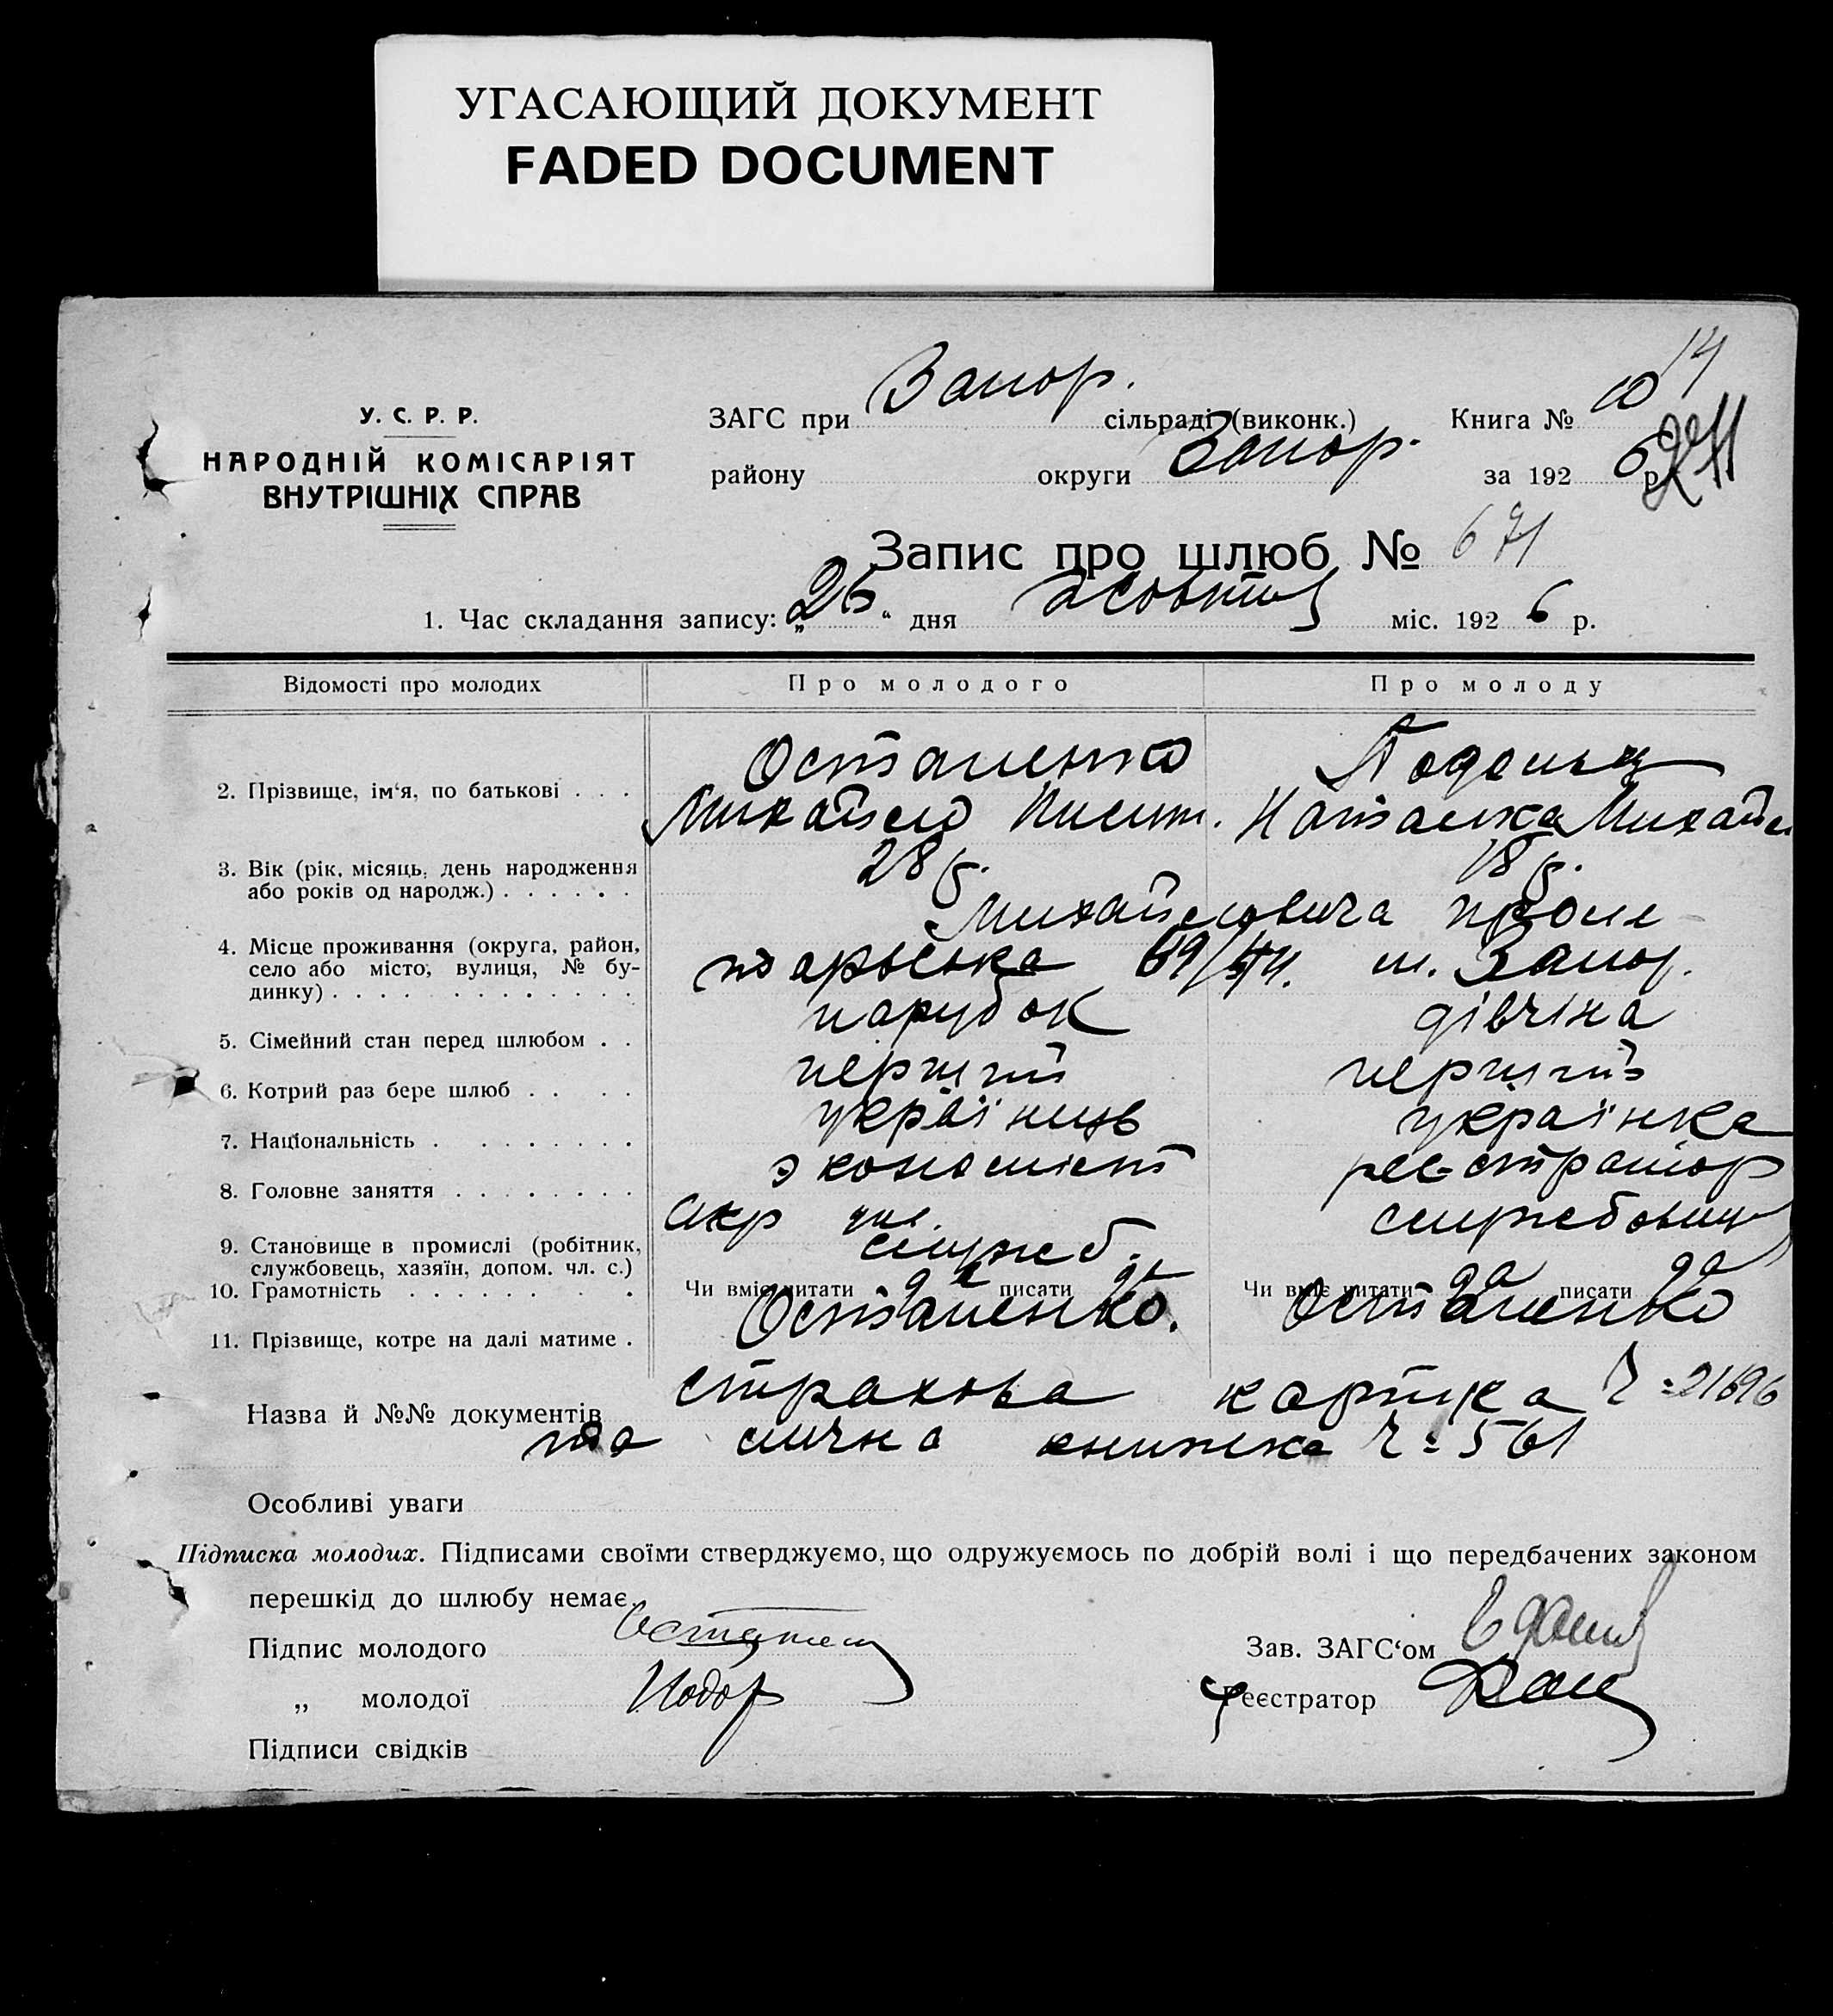 УГАСАЮЩИЙ ДОКУМЕНТ
FADED DOCUMENT
14
У. С. Р. Р.
НАРОДНІЙ КОМІСАРІЯТ
ВНУТРІШНІХ СПРАВ
ЗАГС при Запор. сільраді (виконк.) Книга №
району округи Запор. за 192 6 р.
Запис про шлюб № 671
1. Час складання запису: „26“ дня жовтня міс. 192 6 р.
Відомості про молодих Про молодого Про молоду
2. Прізвище, ім‘я, по батькові . . . Остапенко
Михайло Никит. Наталка Михайл
3. Вік (рік, місяць, день народження або років од народж.) . . . . . . 28 р. 18 р.
4. Місце проживання (округа, район, село або місто, вулиця, № будинку) . . . . . . . . . . . . Михайловича проле
тарська м. Запор.
5. Сімейний стан перед шлюбом . . парубок дівчіна
6. Котрий раз бере шлюб . . . . перший перший
7. Національність . . . . . . . . українць українка
8. Головне заняття . . . . . . . . экономист реєстратор
9. Становище в промислі (робітник, службовець, хазяїн, допом. чл. с.) служб. службовиця
10. Грамотність . . . . . . . . Чи вміє читати да писати да Чи вміє читати да писати да
11. Прізвище, котре на далі матиме . Остапенко. Остапенко
Назва й №№ документів страхова картка Ч=21696
та лична книжка Ч=561
Особливі уваги
Підписка молодих. Підписами своїми стверджуємо, що одружуємось по добрій волі і що передбачених законом
перешкід до шлюбу немає.
Підпис молодого Зав. ЗАГС‘ом
„ молодої Реєстратор
Підписи свідків